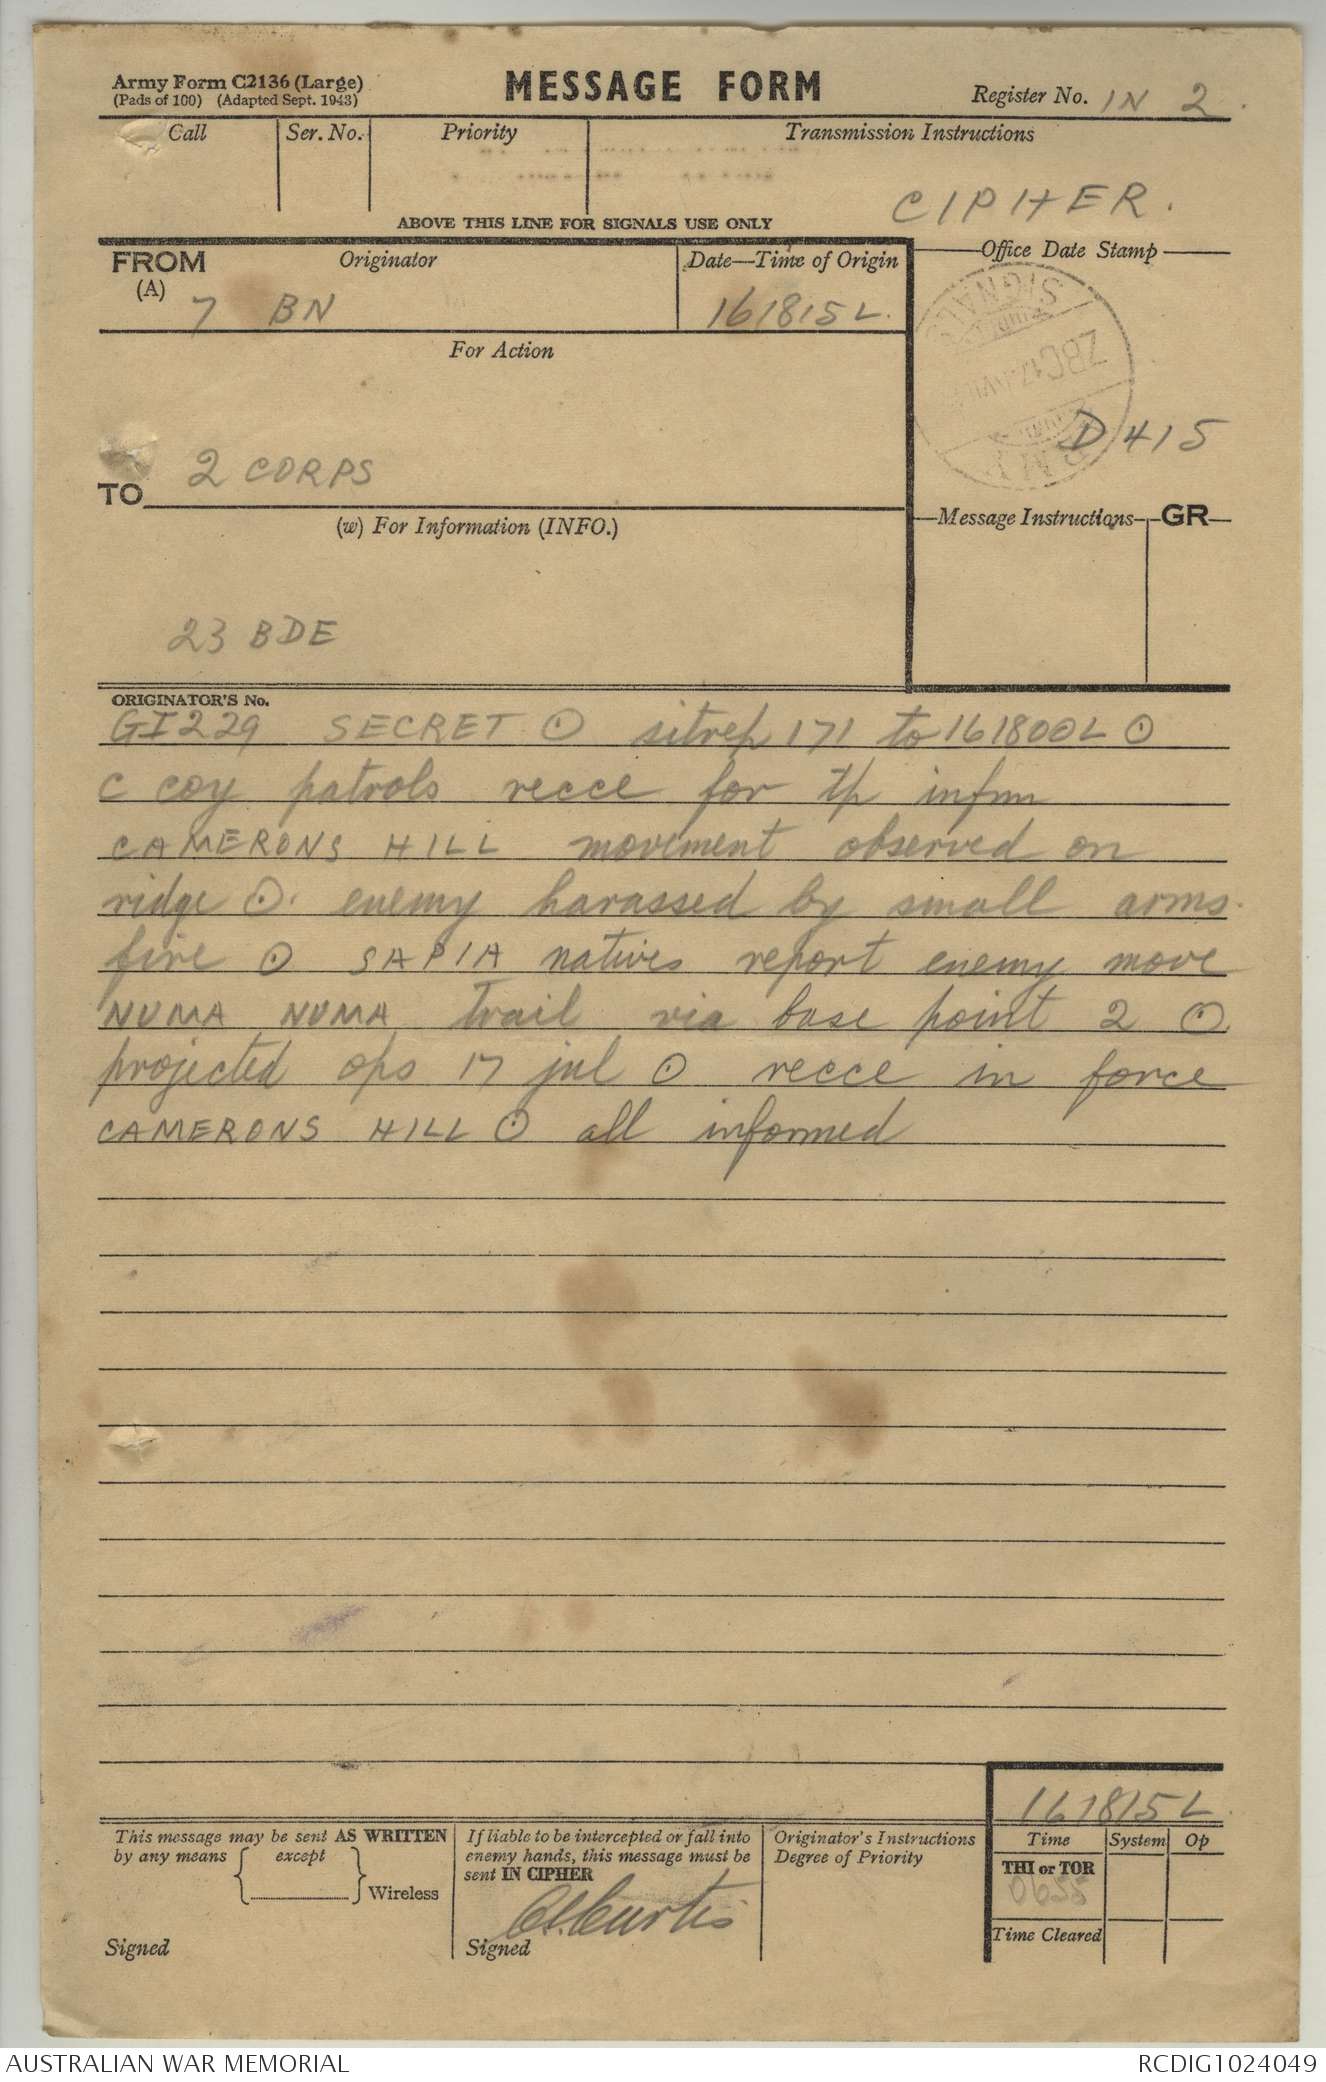 Army Form C2136 (Large)
(Pads of 100) (Adapted Sept. 1943)
MESSAGE FORM
Register No. IN 2.
Call
Ser. No.
Priority
Transmission Instructions
CIPHER.
ABOVE THIS LINE FOR SIGNALS USE ONLY
FROM
(A)
Originator
7 BN
Date—Time of Origin
161815L.
Office Date Stamp
SIGNALS
ZBC
D415
For Action
TO
2 CORPS
(w) For Information (INFO.)
23 BDE
Message Instructions
GR
ORIGINATOR'S No.
GI229 SECRET ⊙ sitrep 171 to 161800L ⊙
C coy patrols recce for tp infm
CAMERONS HILL movement observed on
ridge ⊙. enemy harassed by small arms.
fire ⊙ SAPIA natives report enemy move
NUMA NUMA trail via base point 2 ⊙
projected ops 17 jul ⊙ recce in force
CAMERONS HILL ⊙ all informed
161815L.
This message may be sent AS WRITTEN
by any means { except } Wireless
Signed
If liable to be intercepted or fall into
enemy hands, this message must be
sent IN CIPHER
Signed
Curtis
Originator's Instructions
Degree of Priority
Time
System
Op
THI or TOR
0655
Time Cleared
AUSTRALIAN WAR MEMORIAL
RCDIG1024049